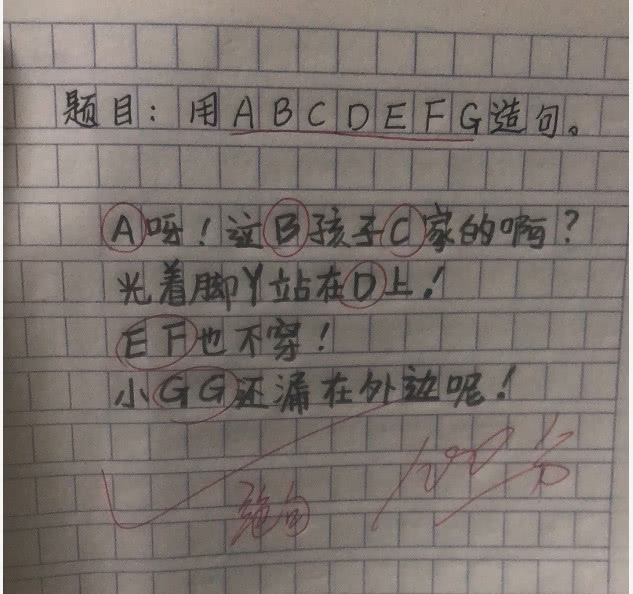 题目：用ABCDEFG造句。
A呀！这B孩子C家的啊？
光着脚丫站在D上！
EF也不穿！
小GG还漏在外边呢！
绝句
100分